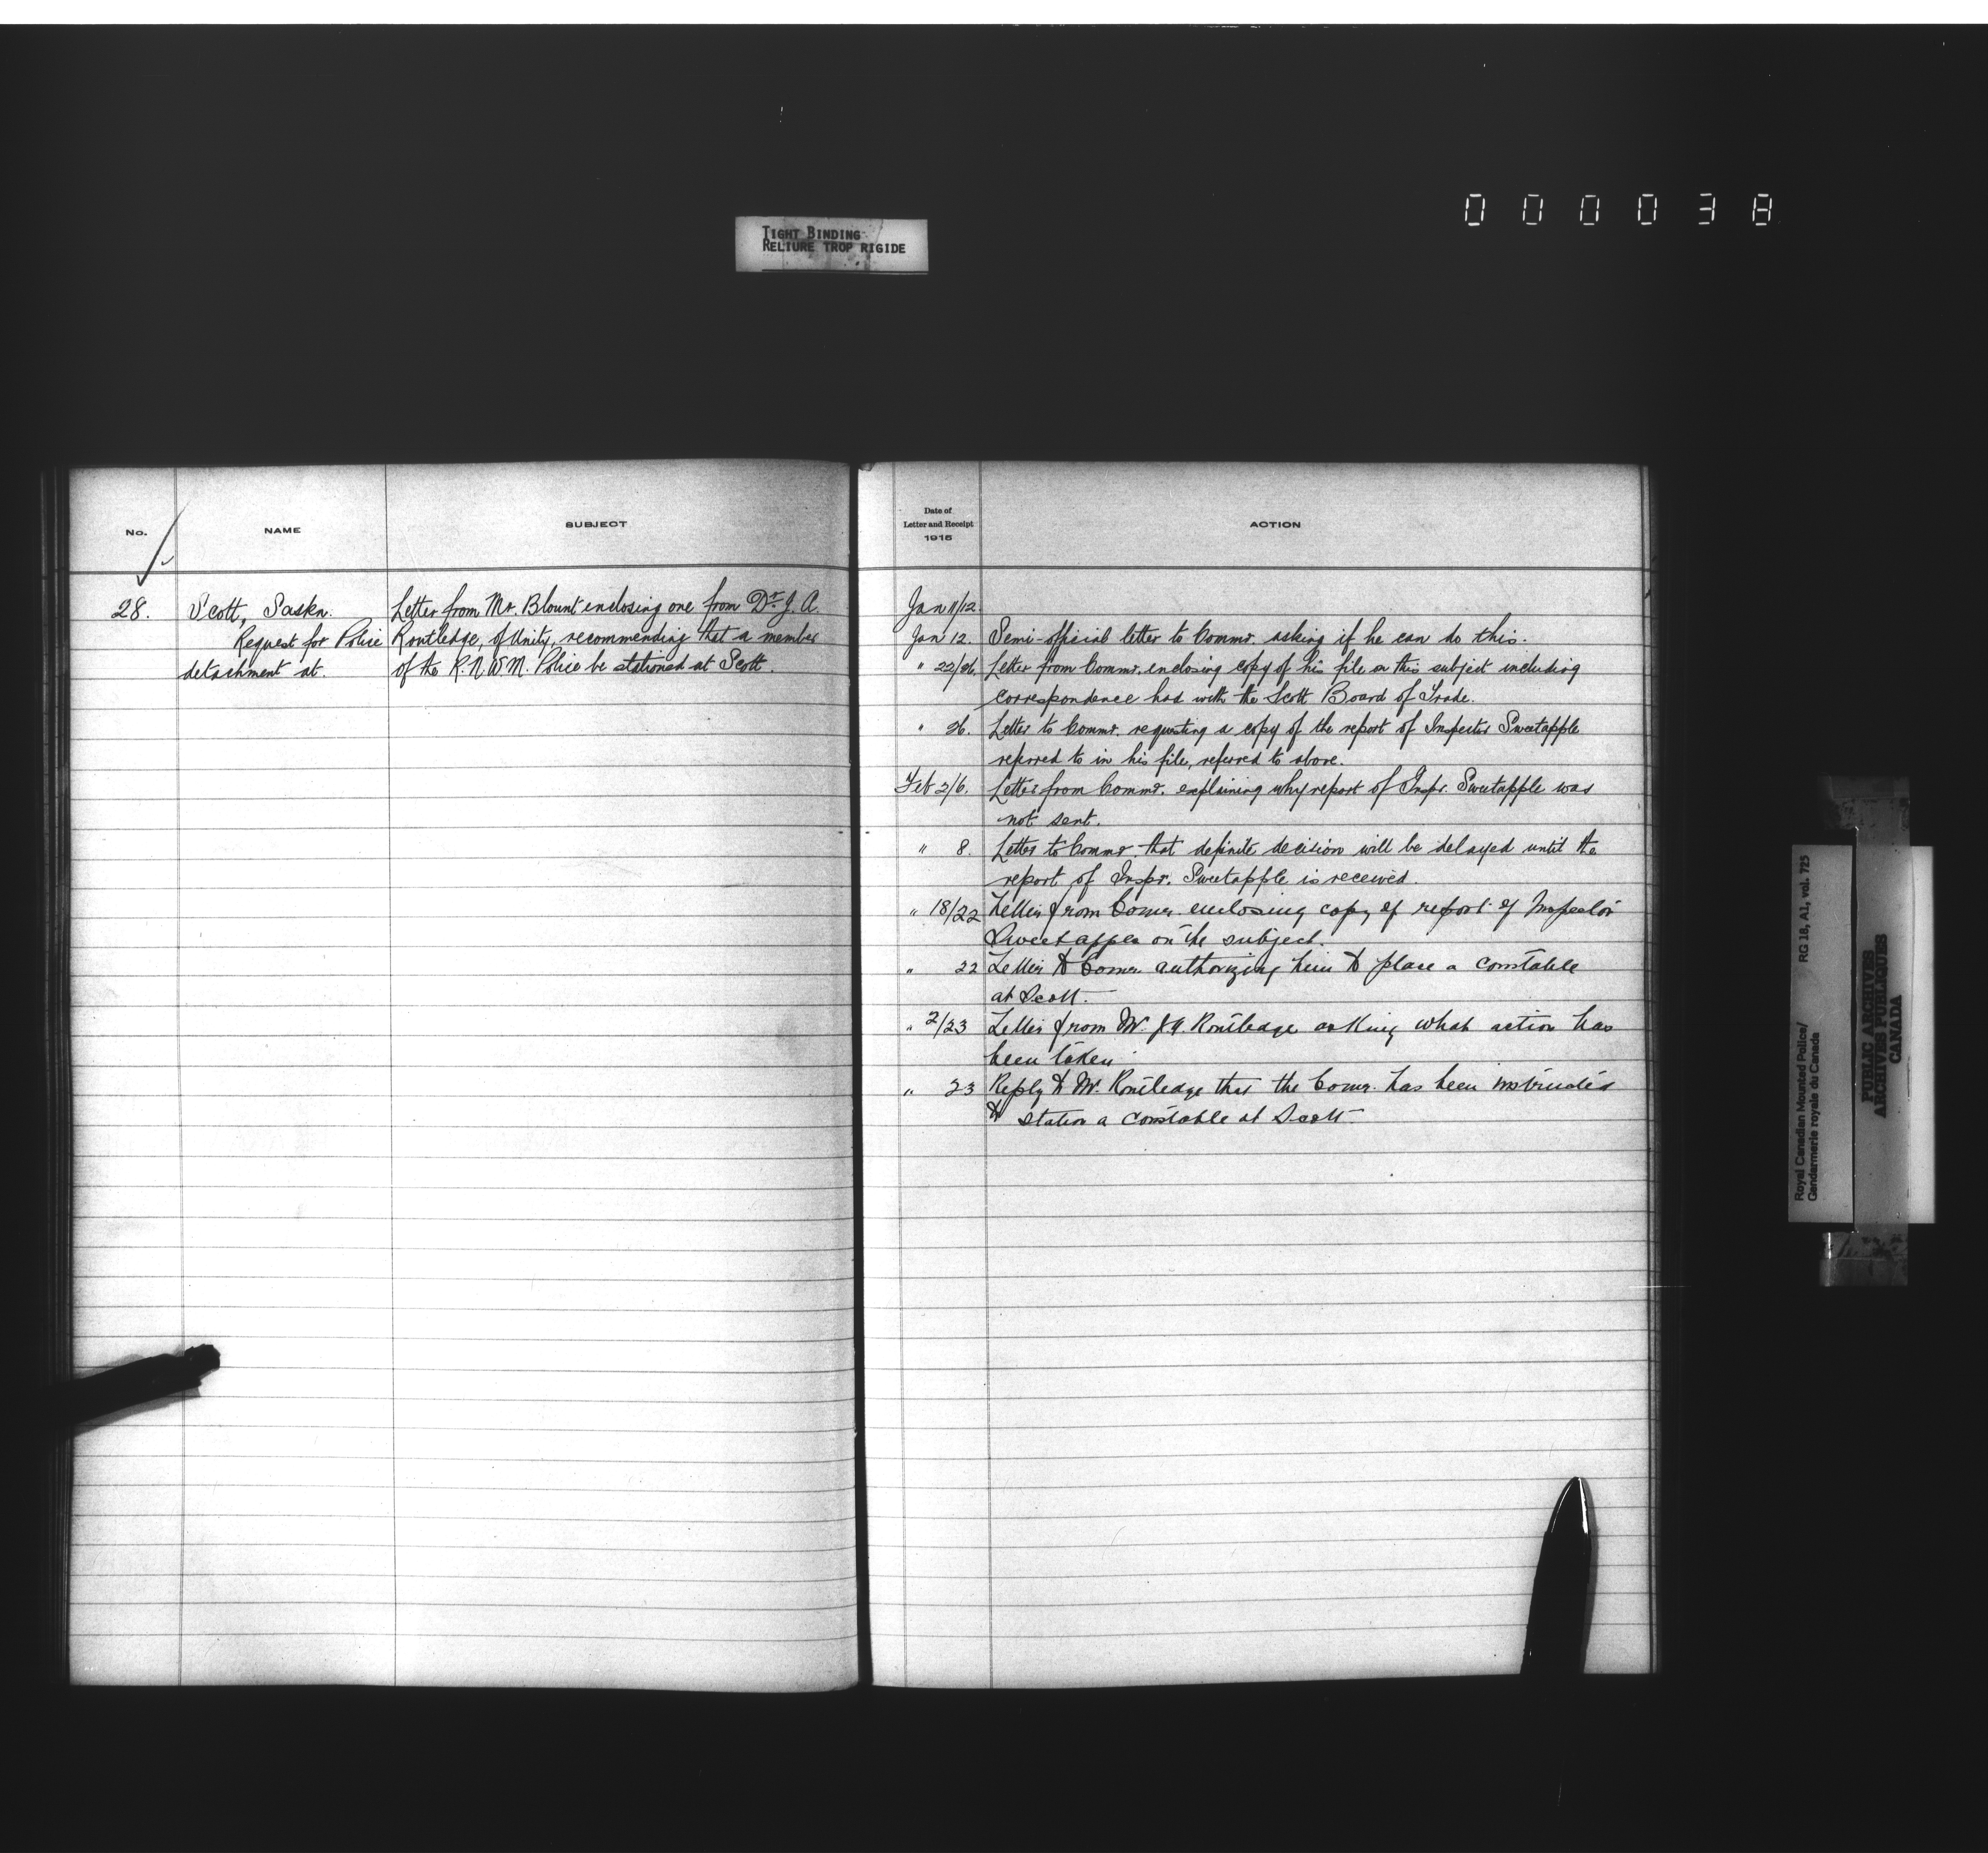 000038
TIGHT BINDING
RELIURE TROP RIGIDE
No.
NAME
SUBJECT
28.
Scott, Saskn.
Request for Police
detachment at.
Letter from Mr. Blount enclosing one from Dr. J. A.
Routledge, of Unity, recommending that a member
of the R.N.W.M. Police be stationed at Scott.
Date of
Letter and Receipt
1915
ACTION
Jan 11/12.
Jan 12. Semi-official letter to Commr. asking if he can do this.
" 22/26. Letter from Commr. enclosing copy of his file on this subject including
correspondence had with the Scott Board of Trade.
" 26. Letter to Commr. requesting a copy of the report of Inspector Sweetapple
referred to in his file, referred to above.
Feb 2/6. Letter from Commr. explaining why report of Inspr. Sweetapple was
not sent.
" 8. Letter to Commr. that definite decision will be delayed until the
report of Inspr. Sweetapple is received.
" 18/22 Letter from Comr. enclosing copy of report of Inspector
Sweetapple on the subject.
" 22 Letter to Comr. authorizing him to place a constable
at Scott.
" 2/23 Letter from Mr. J.A. Routledge asking what action has
been taken
" 23 Reply to Mr. Routledge that the Comr. has been instructed
to station a constable at Scott
Royal Canadian Mounted Police/
Gendarmerie royale du Canada
RG 18, A1, vol. 725
PUBLIC ARCHIVES
ARCHIVES PUBLIQUES
CANADA